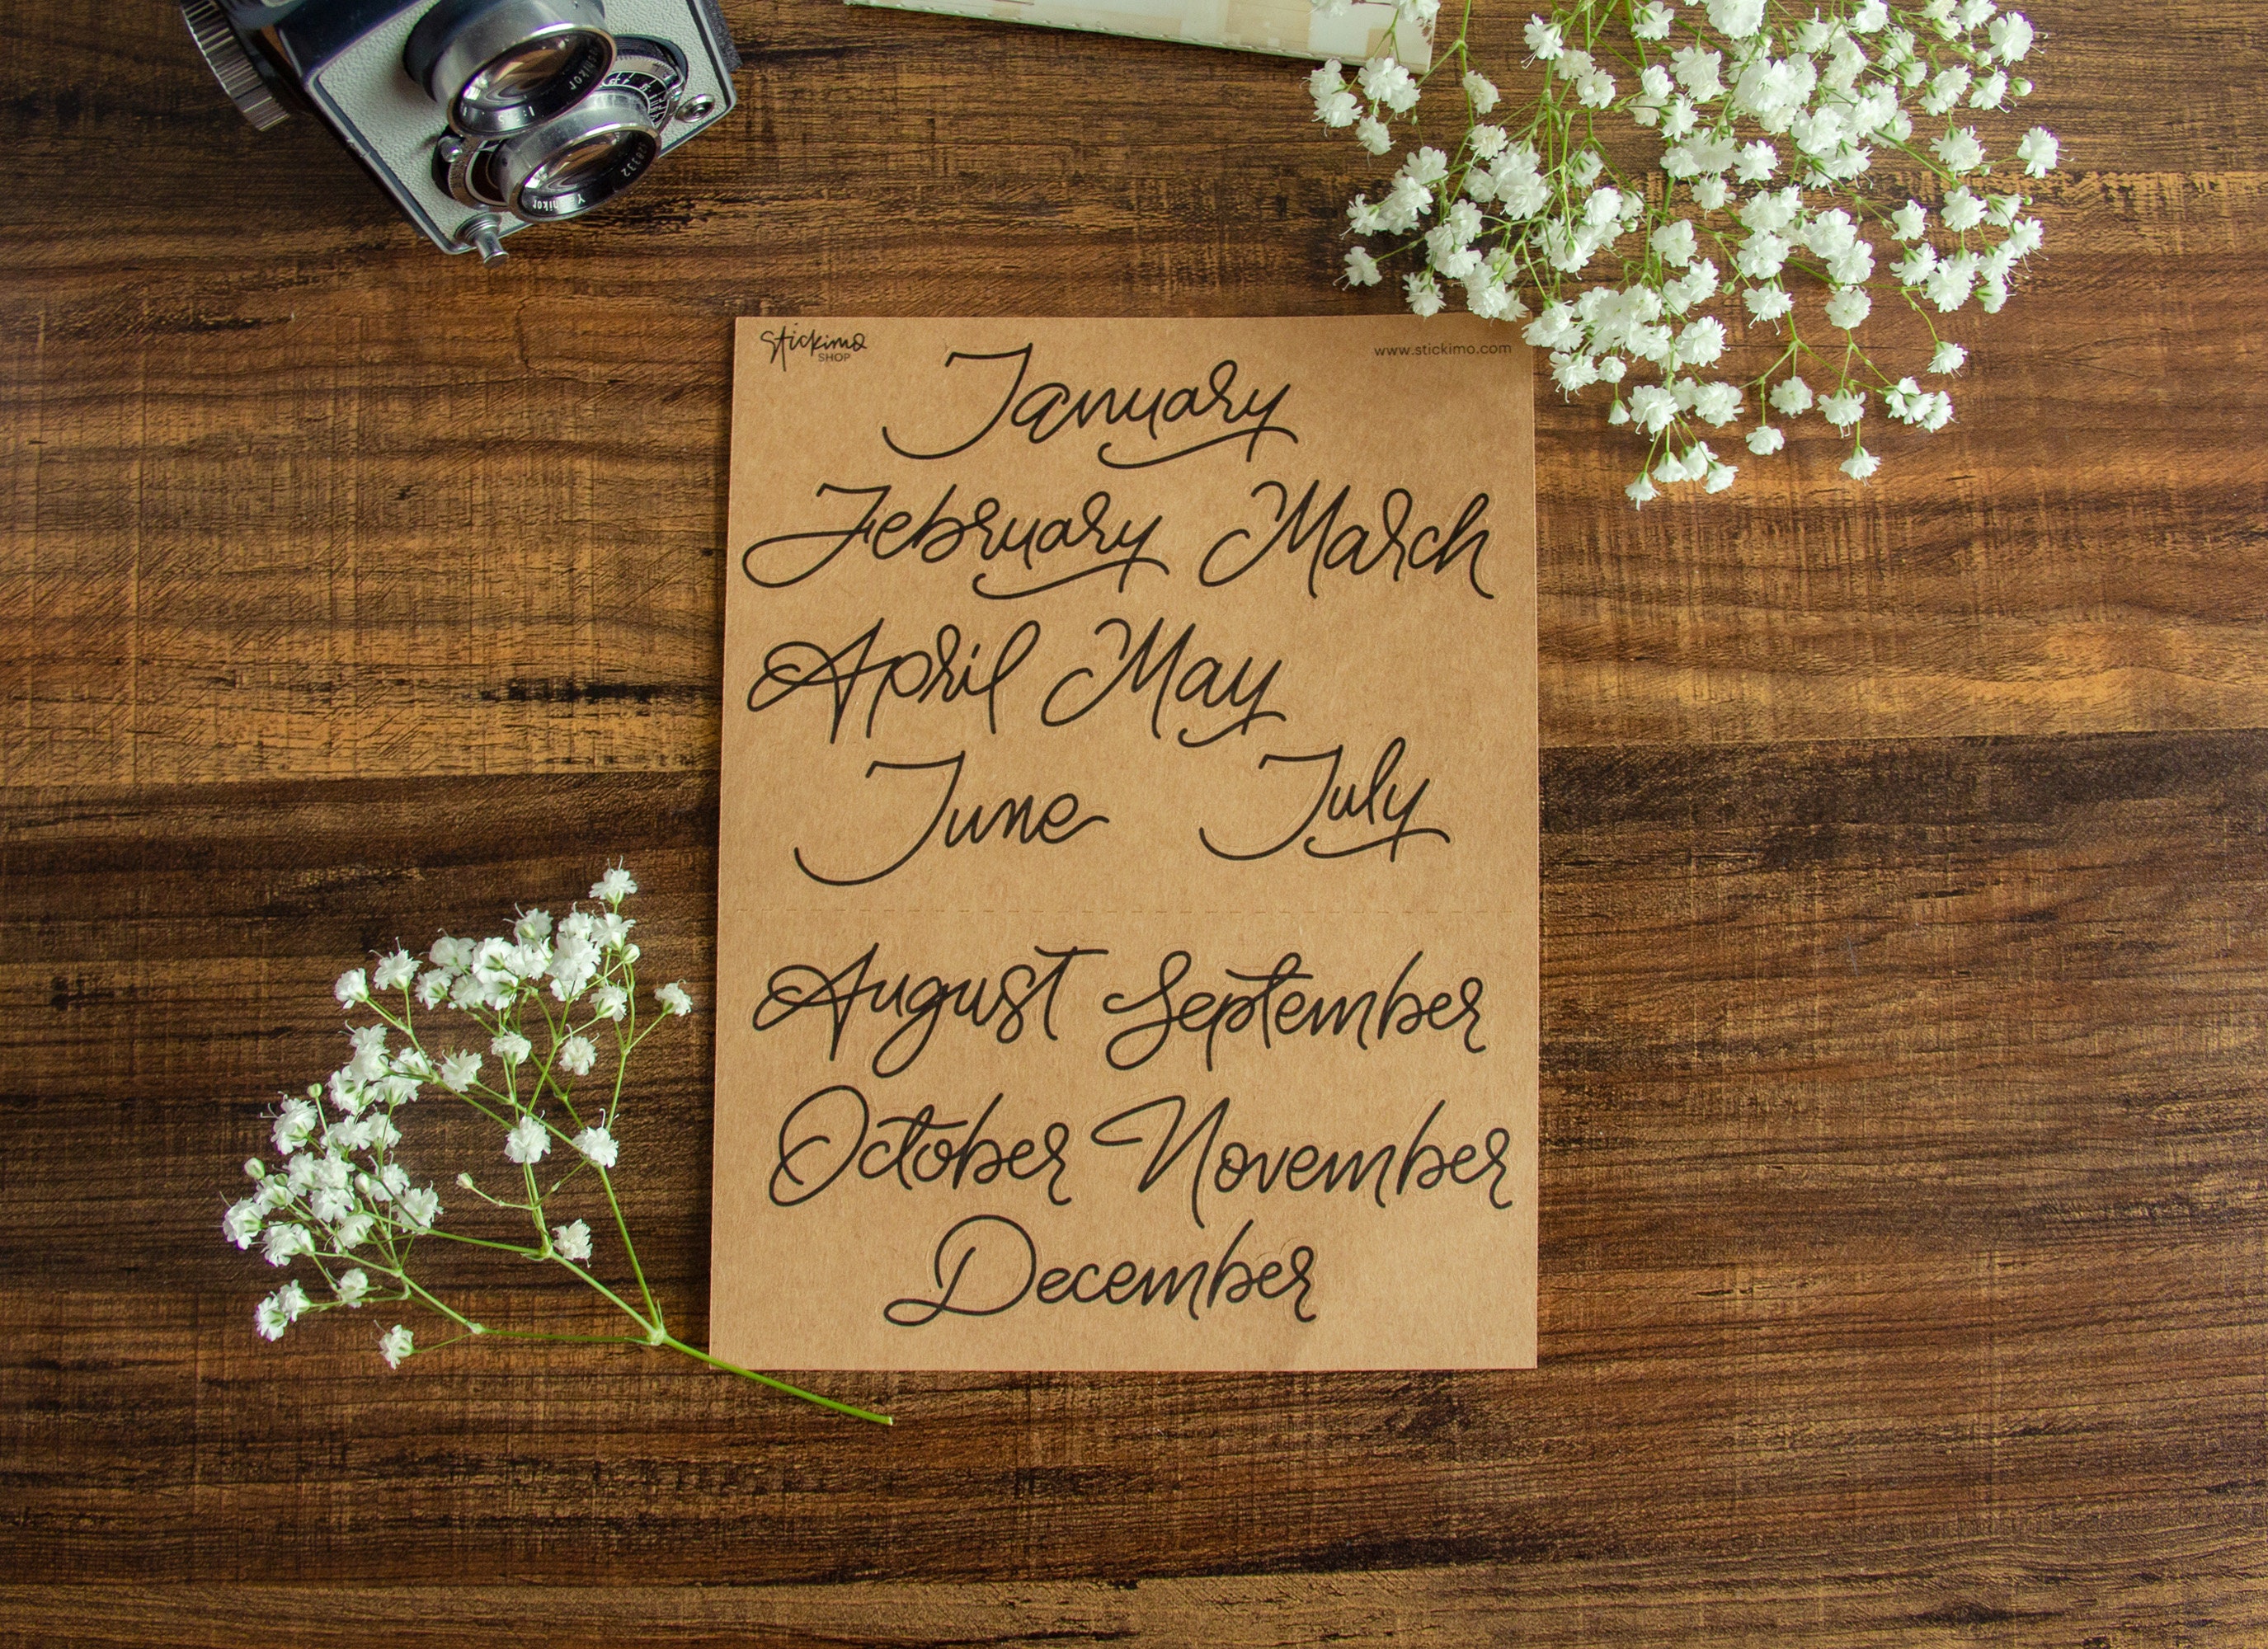 Yashikor
120332
stickimo
SHOP
www.stickimo.com
January
February March
April May
June July
August September
October November
December